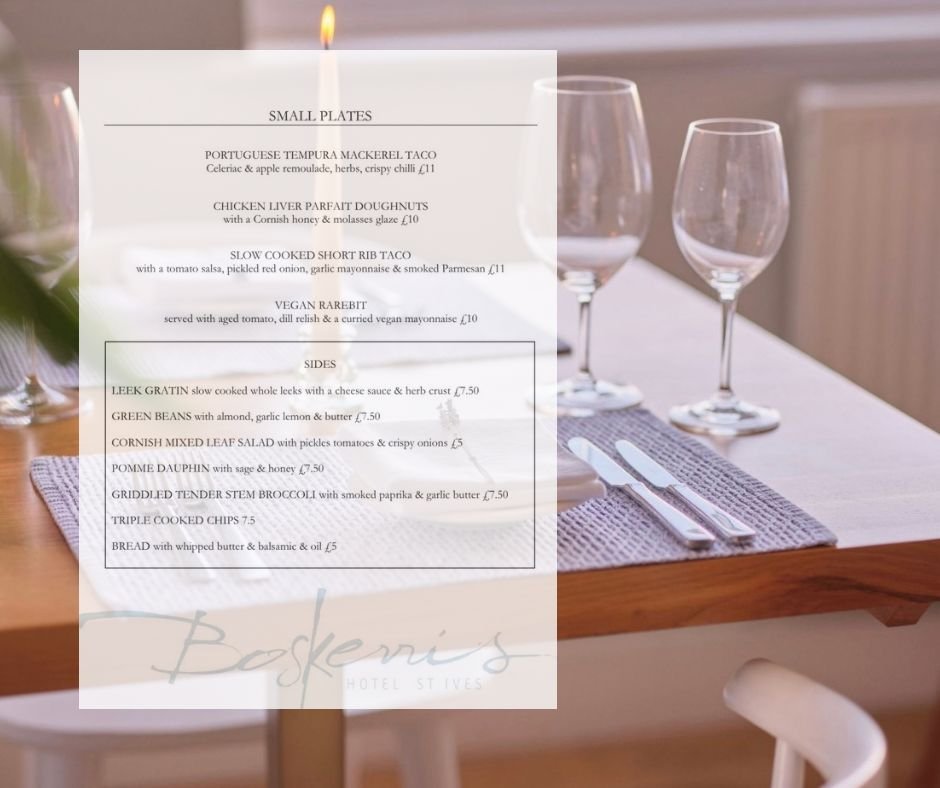 SMALL PLATES
PORTUGUESE TEMPURA MACKEREL TACO
Celeriac & apple remoulade, herbs, crispy chilli £11
CHICKEN LIVER PARFAIT DOUGHNUTS
with a Cornish honey & molasses glaze £10
SLOW COOKED SHORT RIB TACO
with a tomato salsa, pickled red onion, garlic mayonnaise & smoked Parmesan £11
VEGAN RAREBIT
served with aged tomato, dill relish & a curried vegan mayonnaise £10
SIDES
LEEK GRATIN slow cooked whole leeks with a cheese sauce & herb crust £7.50
GREEN BEANS with almond, garlic lemon & butter £7.50
CORNISH MIXED LEAF SALAD with pickles tomatoes & crispy onions £5
POMME DAUPHIN with sage & honey £7.50
GRIDDLED TENDER STEM BROCCOLI with smoked paprika & garlic butter £7.50
TRIPLE COOKED CHIPS 7.5
BREAD with whipped butter & balsamic & oil £5
Boskerris
HOTEL ST IVES